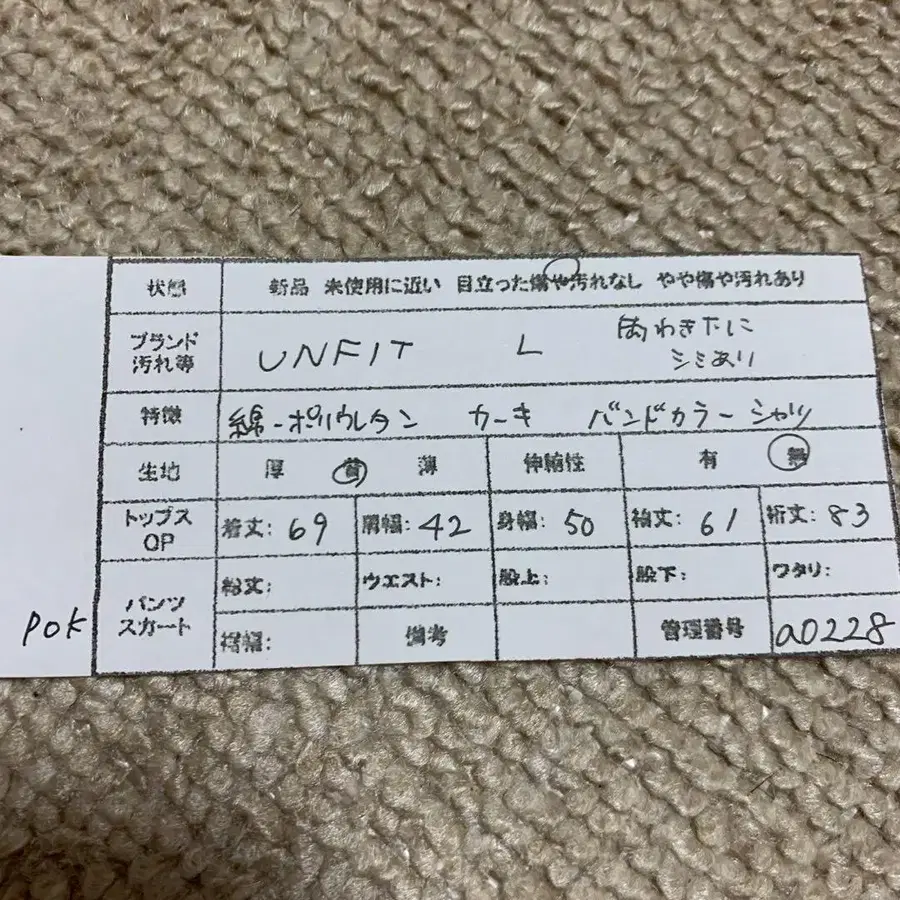 状態 新品 未使用に近い 目立った傷や汚れなし やや傷や汚れあり
ブランド
汚れ等 UNFIT L 両わき下に
シミあり
特徴 綿-ポリウレタン カーキ バンドカラーシャツ
生地 厚 普 薄 伸縮性 有 無
トップス
OP 着丈: 69 肩幅: 42 身幅: 50 袖丈: 61 裄丈: 83
パンツ
スカート 総丈: ウエスト: 股上: 股下: ワタリ:
裾幅: 備考 管理番号 a0228
POK